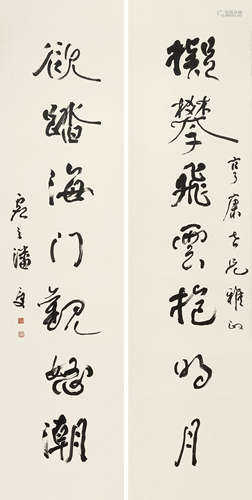 擬攀飛雲抱明月
亨康吉兄雅正
欲踏海門觀怒潮
君之潘受